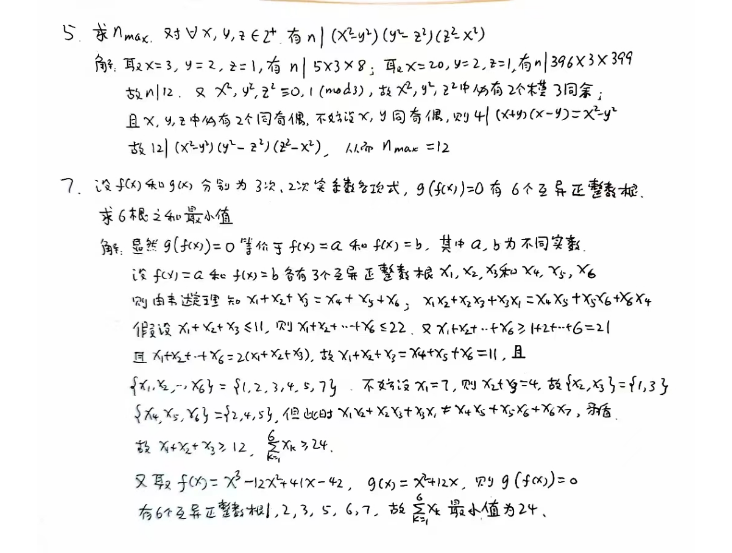 5. 求 n max. 对 ∀x, y, z ∈ Z⁺ 有 n | (x²-y²)(y²-z²)(z²-x²)
解: 取x=3, y=2, z=1, 有 n | 5×3×8; 取x=20, y=2, z=1, 有n|396×3×399
故n|12. 又 x², y², z² ≡0, 1 (mod3), 故 x², y², z²中必有2个模3同余;
且x, y, z中必有2个同奇偶. 不妨设x, y 同奇偶, 则 4 | (x+y)(x-y)=x²-y²
故 12 | (x²-y²)(y²-z²)(z²-x²), 从而 n max =12
7. 设f(x)和g(x) 分别为 3次、2次实系数多项式, g(f(x))=0 有 6个互异正整数根.
求6根之和最小值
解: 显然 g(f(x))=0 等价于 f(x)=a 和 f(x)=b, 其中 a, b为不同实数.
设 f(x)=a 和 f(x)=b各有3个互异正整数根 x₁, x₂, x₃和 x₄, x₅, x₆
则由韦达定理 知 x₁+x₂+x₃=x₄+x₅+x₆; x₁x₂+x₂x₃+x₃x₁=x₄x₅+x₅x₆+x₆x₄
假设 x₁+x₂+x₃≤11, 则 x₁+x₂+…+x₆≤22. 又 x₁+x₂+…+x₆≥1+2+…+6=21
且 x₁+x₂+…+x₆=2(x₁+x₂+x₃), 故 x₁+x₂+x₃=x₄+x₅+x₆=11, 且
{x₁, x₂, …, x₆} = {1, 2, 3, 4, 5, 7}. 不妨设 x₁=7, 则 x₂+x₃=4, 故{x₂, x₃}={1, 3}
{x₄, x₅, x₆}={2, 4, 5}, 但此时 x₁x₂+x₂x₃+x₃x₁≠x₄x₅+x₅x₆+x₆x₇, 矛盾.
故 x₁+x₂+x₃≥12, ∑⁶ₖ₌₁ xₖ≥24.
又取 f(x)=x³-12x²+41x-42, g(x)=x²+12x, 则 g(f(x))=0
有6个互异正整数根1, 2, 3, 5, 6, 7, 故 ∑⁶ₖ₌₁ xₖ 最小值为24.